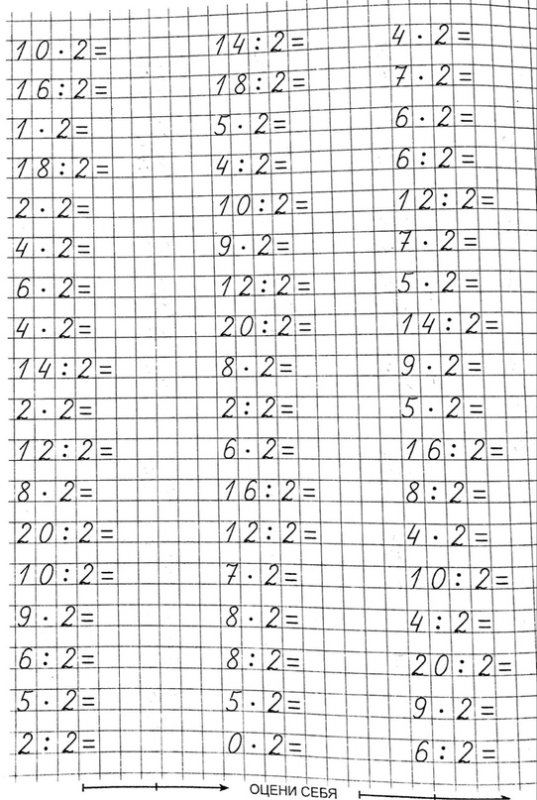 10 · 2 = 14 : 2 = 4 · 2 =
16 : 2 = 18 : 2 = 7 · 2 =
1 · 2 = 5 · 2 = 6 · 2 =
18 : 2 = 4 : 2 = 6 : 2 =
2 · 2 = 10 : 2 = 12 : 2 =
4 · 2 = 9 · 2 = 7 · 2 =
6 · 2 = 12 : 2 = 5 · 2 =
4 · 2 = 20 : 2 = 14 : 2 =
14 : 2 = 8 · 2 = 9 · 2 =
2 · 2 = 2 : 2 = 5 · 2 =
12 : 2 = 6 · 2 = 16 : 2 =
8 · 2 = 16 : 2 = 8 : 2 =
20 : 2 = 12 : 2 = 4 · 2 =
10 : 2 = 7 · 2 = 10 : 2 =
9 · 2 = 8 · 2 = 4 : 2 =
6 : 2 = 8 : 2 = 20 : 2 =
5 · 2 = 5 · 2 = 9 · 2 =
2 : 2 = 0 · 2 = 6 : 2 =
ОЦЕНИ СЕБЯ